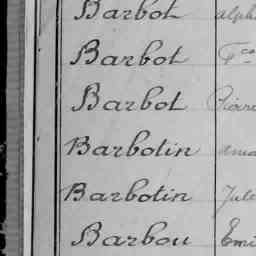 Barbot alph
Barbot Fco
Barbot Pierre
Barbotin ama
Barbotin Jule
Barbou Emi